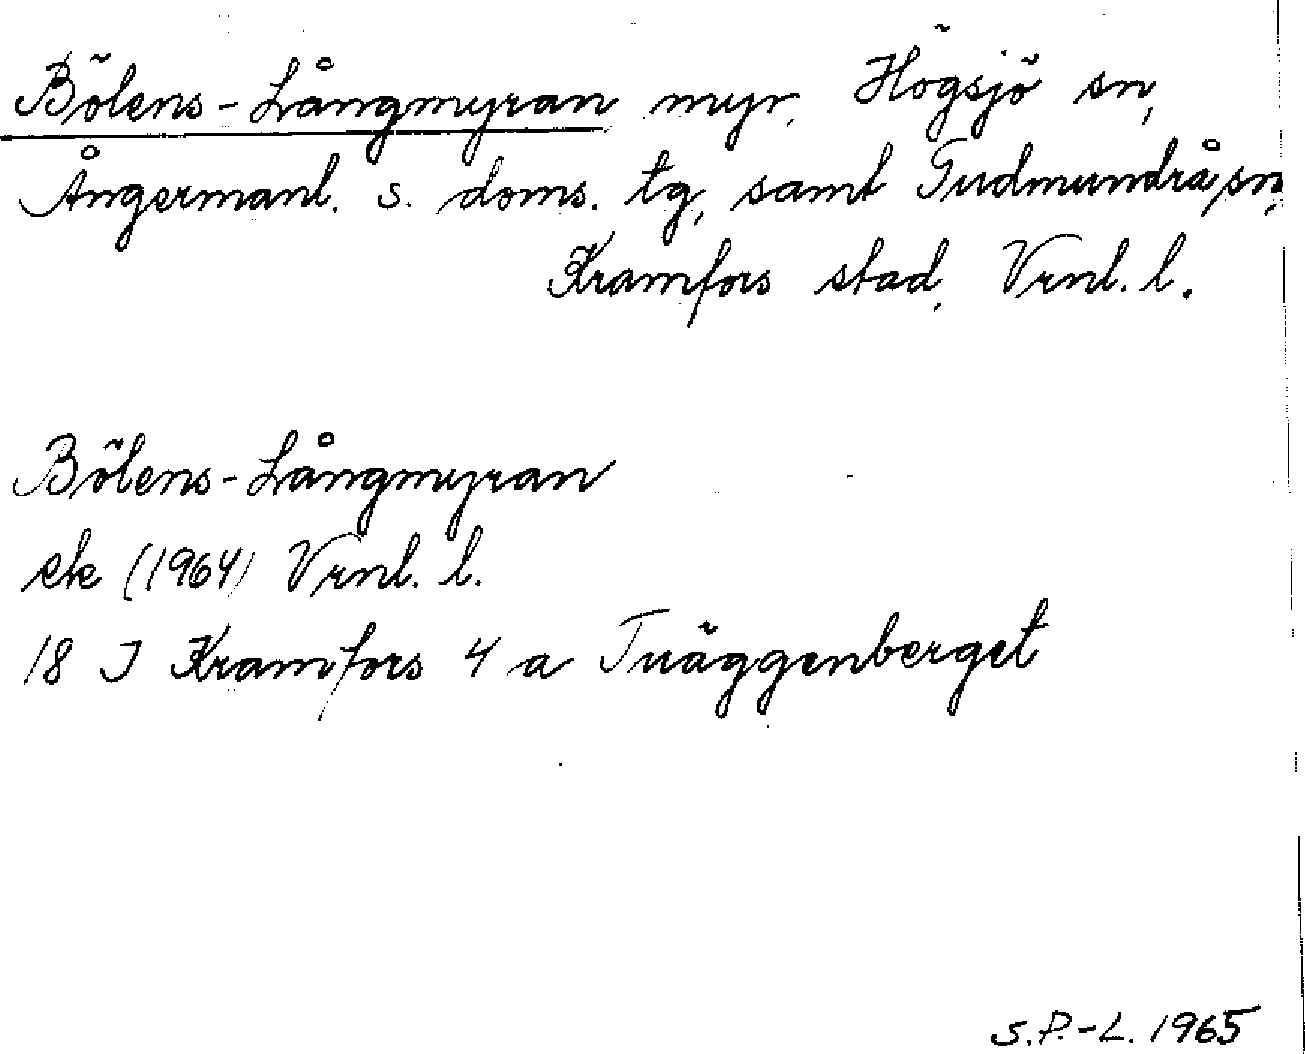 Bölens-Långmyran myr, Högsjö sn,
Ångermanl. s. doms. tg, samt Gudmundrå sn,
Kramfors stad, Vrnl. l.
Bölens-Långmyran
ek (1964) Vrnl. l.
18 J Kramfors 4 a Tväggenberget
S.P.-L. 1965